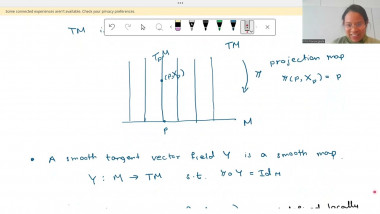 Some connected experiences aren't available. Check your privacy preferences.
TM
TₚM
TM
(p,Xₚ)
π
projection map
π(p, Xₚ) = p
p
M
• A smooth tangent vector field Y is a smooth map
Y : M → TM s.t. π∘Y = Id_M
locally